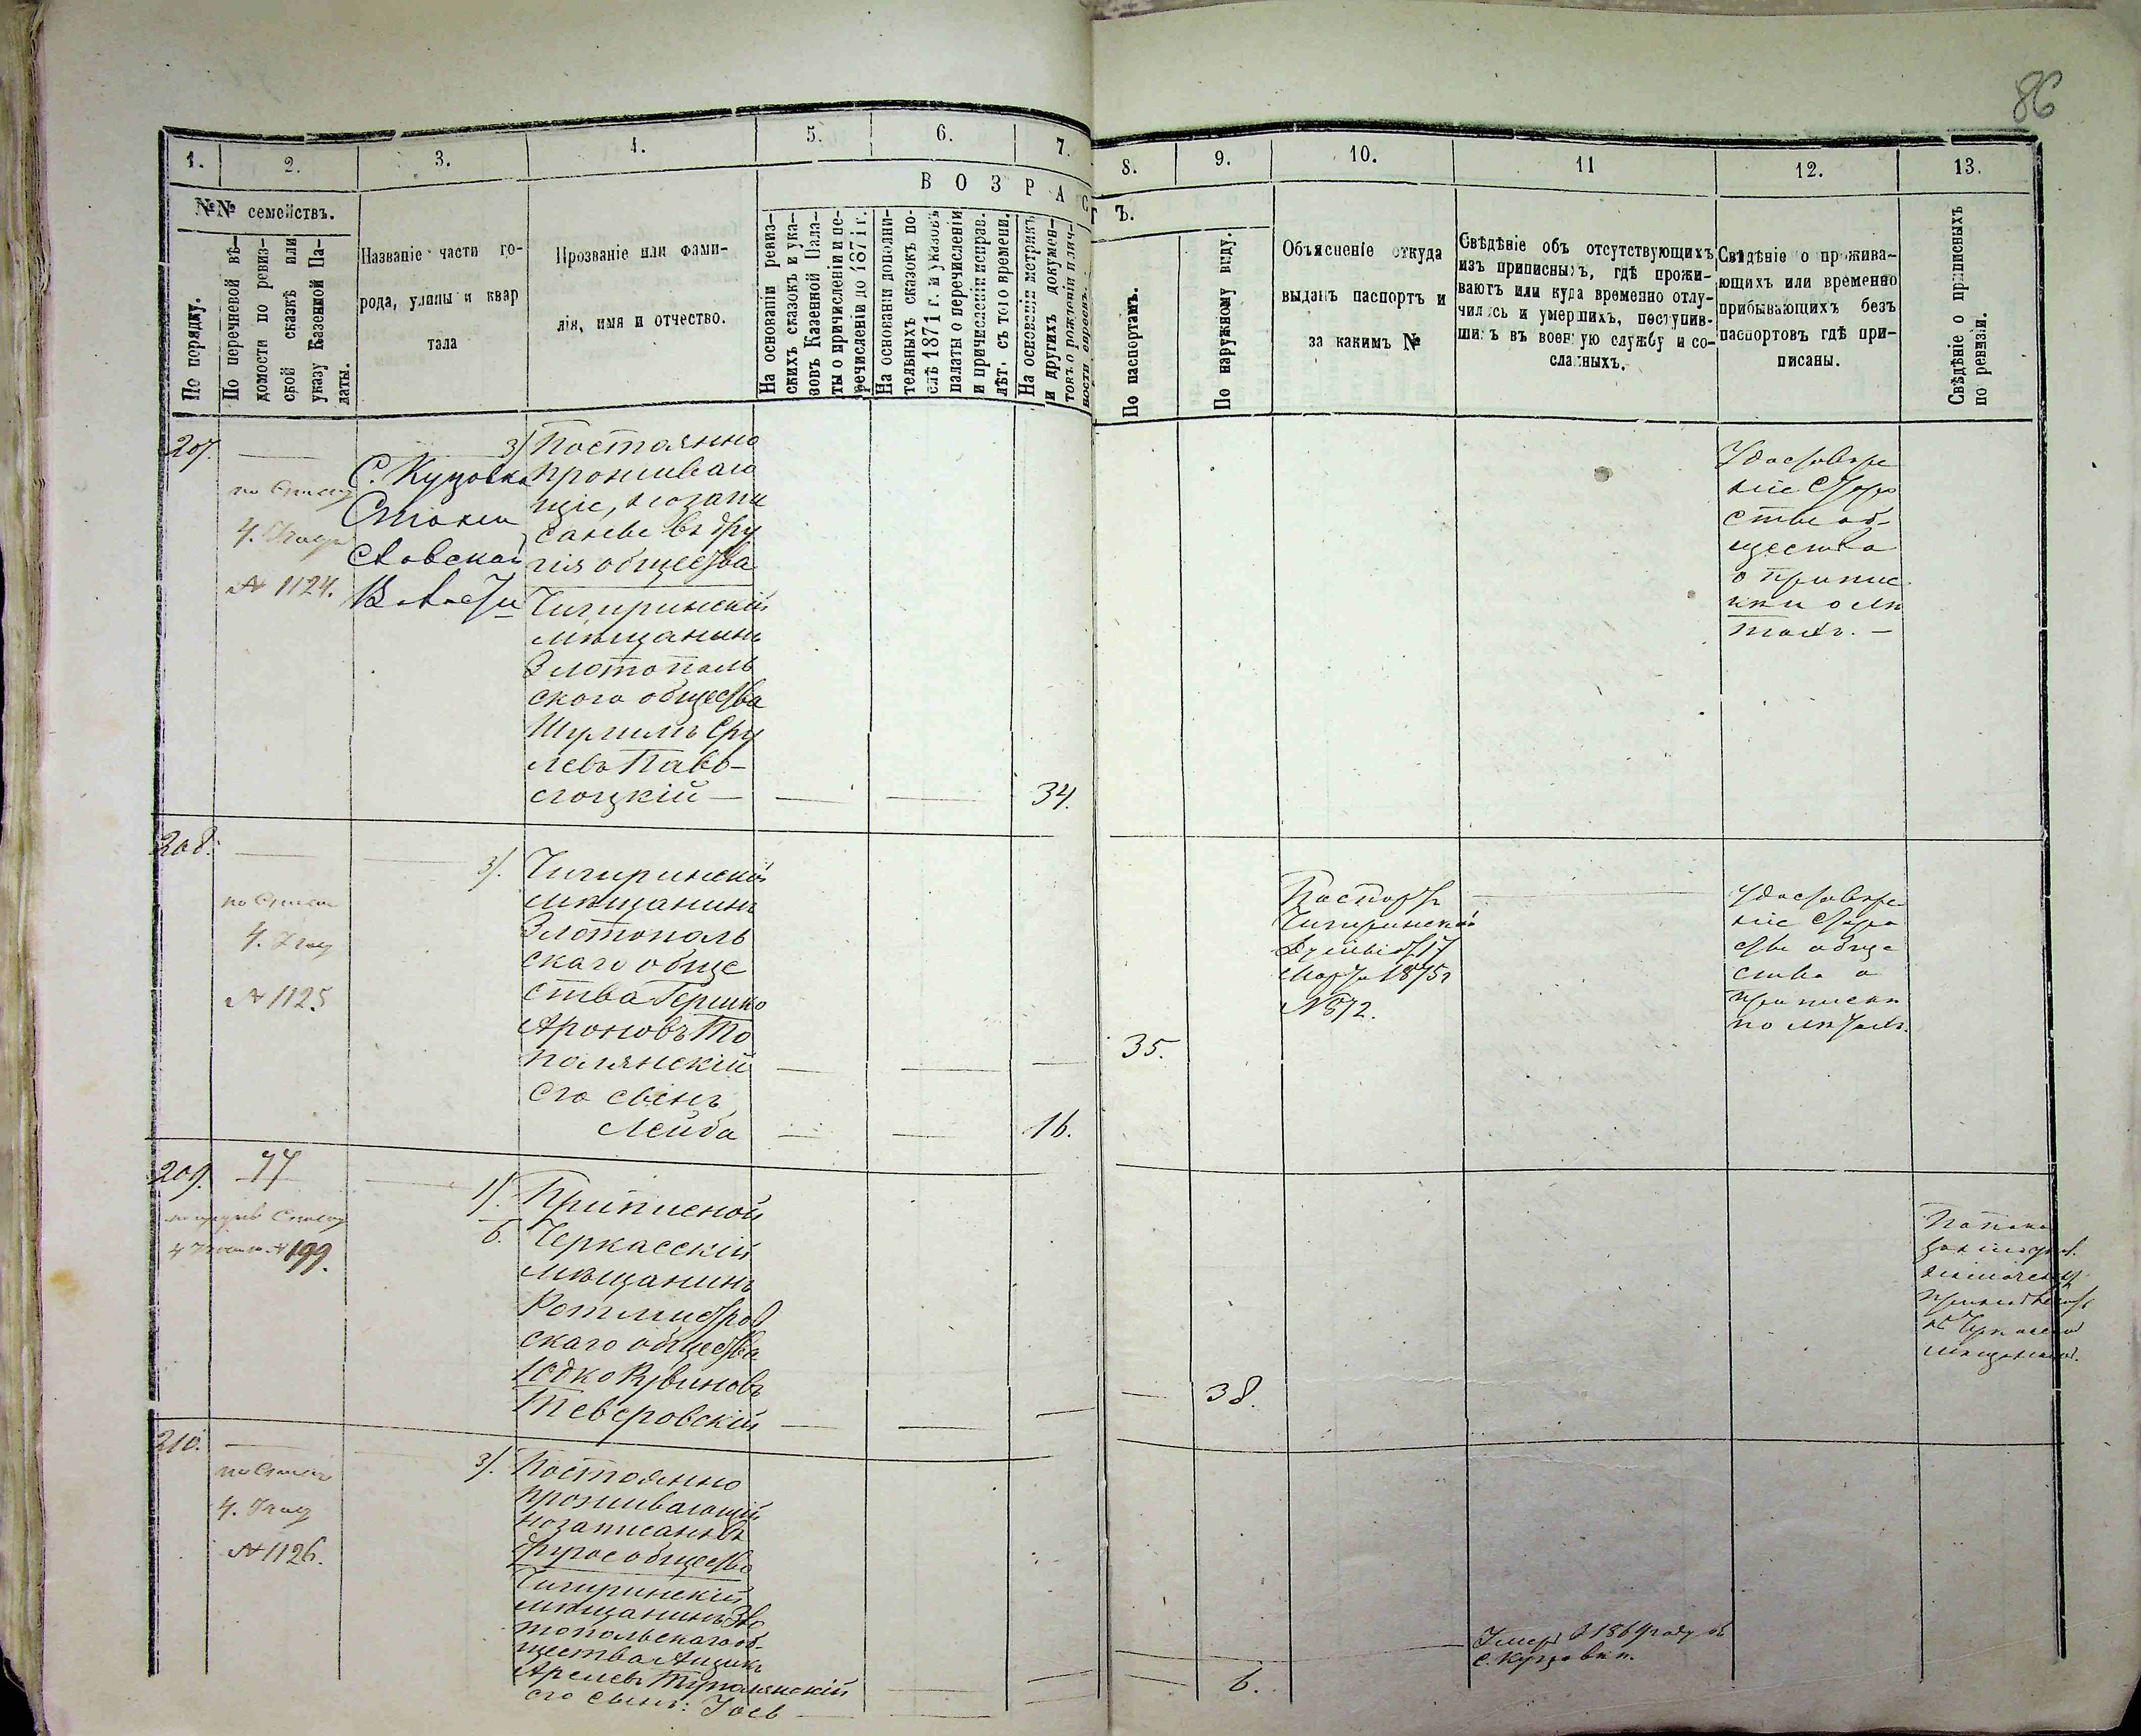 86
1.
2.
3.
4.
5.
6.
7.
8.
9.
10.
11
12.
13.
№№ семействъ.
По порядку.
По перечневой вѣ-
домости по ревиз-
ской сказкѣ или
указу Казенной Па-
латы.
Названіе части го-
рода, улицы и квар
тала
Прозваніе или фами-
лія, имя и отчество.
ВОЗРАСТЪ.
На основаніи ревиз-
скихъ сказокъ и ука-
зовъ Казенной Пала-
ты о причисленіи и пе-
речисленіи до 1871 г.
На основаніи дополни-
тельныхъ сказокъ по-
слѣ 1871 г. и указовъ
палаты о перечисленіи
и причисленіи исправ.
лѣт. съ того времени.
На основаніи метрикъ
и другихъ докумен-
товъ о рожденіи и лич-
ности евреевъ.
По паспортамъ.
По наружному виду.
Объясненіе откуда
выданъ паспортъ и
за какимъ №
Свѣдѣніе объ отсутствующихъ
изъ приписныхъ, гдѣ прожи-
ваютъ или куда временно отлу-
чились и умершихъ, поступив-
шихъ въ военную службу и со-
сланныхъ.
Свѣдѣніе о прожива-
ющихъ или временно
прибывающихъ безъ
паспортовъ гдѣ при-
писаны.
Свѣдѣніе о приписныхъ
по ревизіи.
207.
по Списку
№ 1124.
С. Куцовка
Смѣлян
ской
Волости
3/ Постоянно
проживаю
щіе, но запи
саные въ дру
гія общества
Чигиринскій
мѣщанинъ
Златополь
скаго общества
Шулимъ Сру
левъ Паво-
лоцкій
34.
Удостовѣре
ніе Старо
сты об-
щества
о припис
ки о лѣ
тахъ.
208.
по Списку
№ 1125
3/. Чигиринскій
мѣщанинъ
Златополь
скаго обще
ства Гершко
Ароновъ То
полянскій
его сынъ
Лейба
16.
35.
Паспортъ
Чигиринской
Думы отъ 17
Марта 1875 г
№ 872.
Удостовѣре
ніе Старо
сты обще
ства о
приписки
по лѣтамъ.
209.
77
Списку
№ 199.
1/. Приписной
б. Черкасскій
мѣщанинъ
Ротмистров
скаго общества
Юдко Рувиновъ
Тверовскій
38.
210.
по Списку
№ 1126.
3/. Постоянно
проживающій
но записан въ
другое общество
Чигиринскій
мѣщанинъ Зла
топольскаго об-
щества Ицикъ
Арелевъ Тополянскій
его сынъ: Іосъ
6.
Умеръ въ 1869 году въ
с. Куцовки.